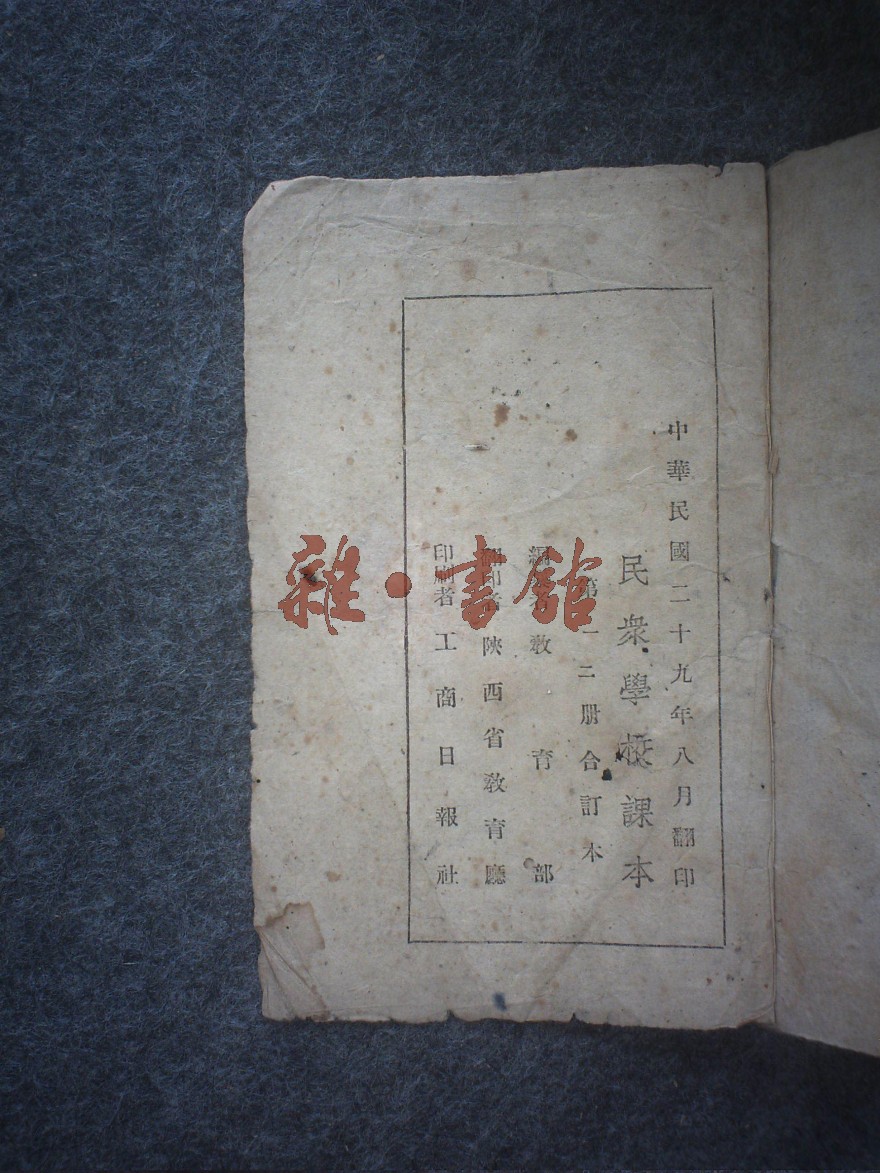 中華民國二十九年八月翻印
民衆學校課本
第一二册合訂本
編者教育部
翻印者陝西省教育廳
印刷者工商日報社
雜·書館